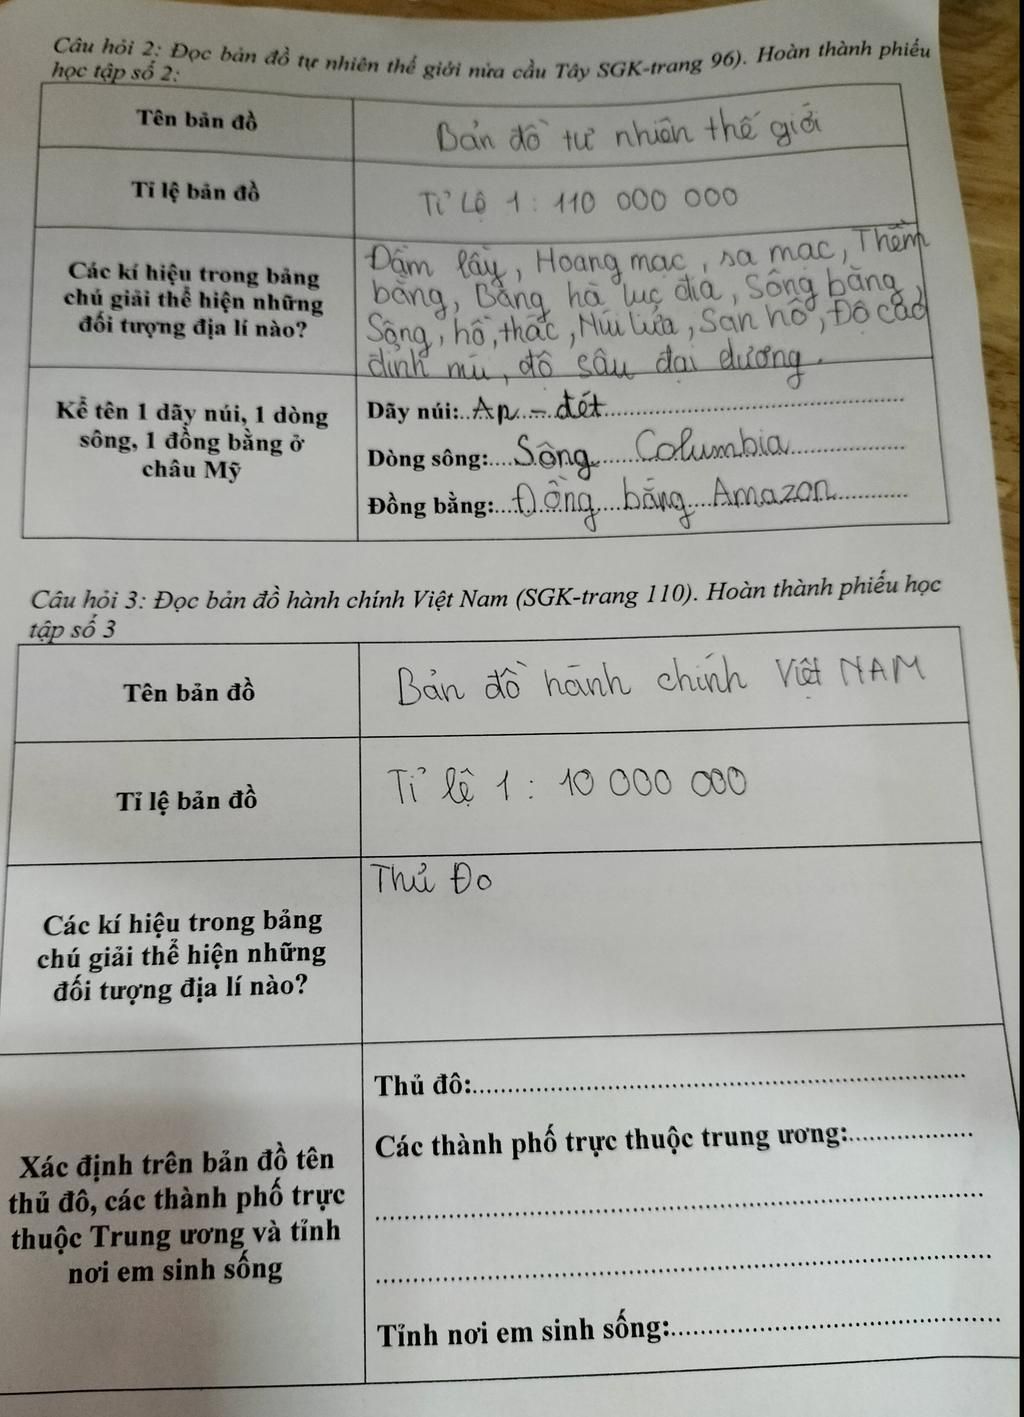 Câu hỏi 2: Đọc bản đồ tự nhiên thế giới nửa cầu Tây SGK-trang 96). Hoàn thành phiếu
học tập số 2:
Tên bản đồ
Bản đồ tự nhiên thế giới
Tỉ lệ bản đồ
Tỉ Lệ 1 : 110 000 000
Các kí hiệu trong bảng
chú giải thể hiện những
đối tượng địa lí nào?
Dầm lầy, Hoang mạc, sa mac, Thềm
băng, Băng hà lục địa, Sông băng,
Sông, hồ, thác, Núi lửa, San hô, Độ cao
đỉnh núi, độ sâu đại dương.
Kể tên 1 dãy núi, 1 dòng
sông, 1 đồng bằng ở
châu Mỹ
Dãy núi:..An - đét
Dòng sông:....Sông Columbia
Đồng bằng:...Đồng bằng Amazon
Câu hỏi 3: Đọc bản đồ hành chính Việt Nam (SGK-trang 110). Hoàn thành phiếu học
tập số 3
Tên bản đồ
Bản đồ hành chính Việt NAM
Tỉ lệ bản đồ
Tỉ lệ 1 : 10 000 000
Các kí hiệu trong bảng
chú giải thể hiện những
đối tượng địa lí nào?
Thủ Đo
Xác định trên bản đồ tên
thủ đô, các thành phố trực
thuộc Trung ương và tỉnh
nơi em sinh sống
Thủ đô:
Các thành phố trực thuộc trung ương:
Tỉnh nơi em sinh sống: